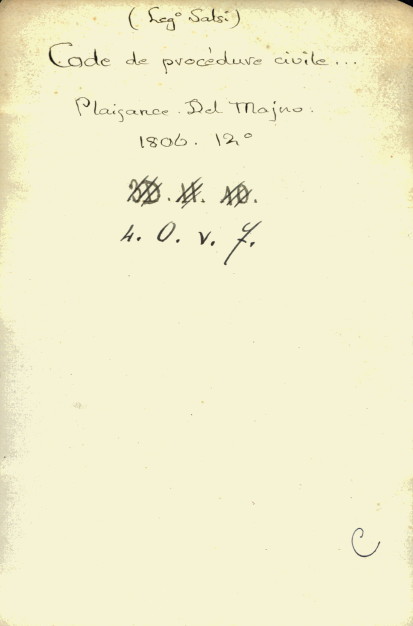 (Leg° Salsi)
Code de procédure civile...
Plaisance. Del Majno.
1806. 12°
4. O. v. 7.
C